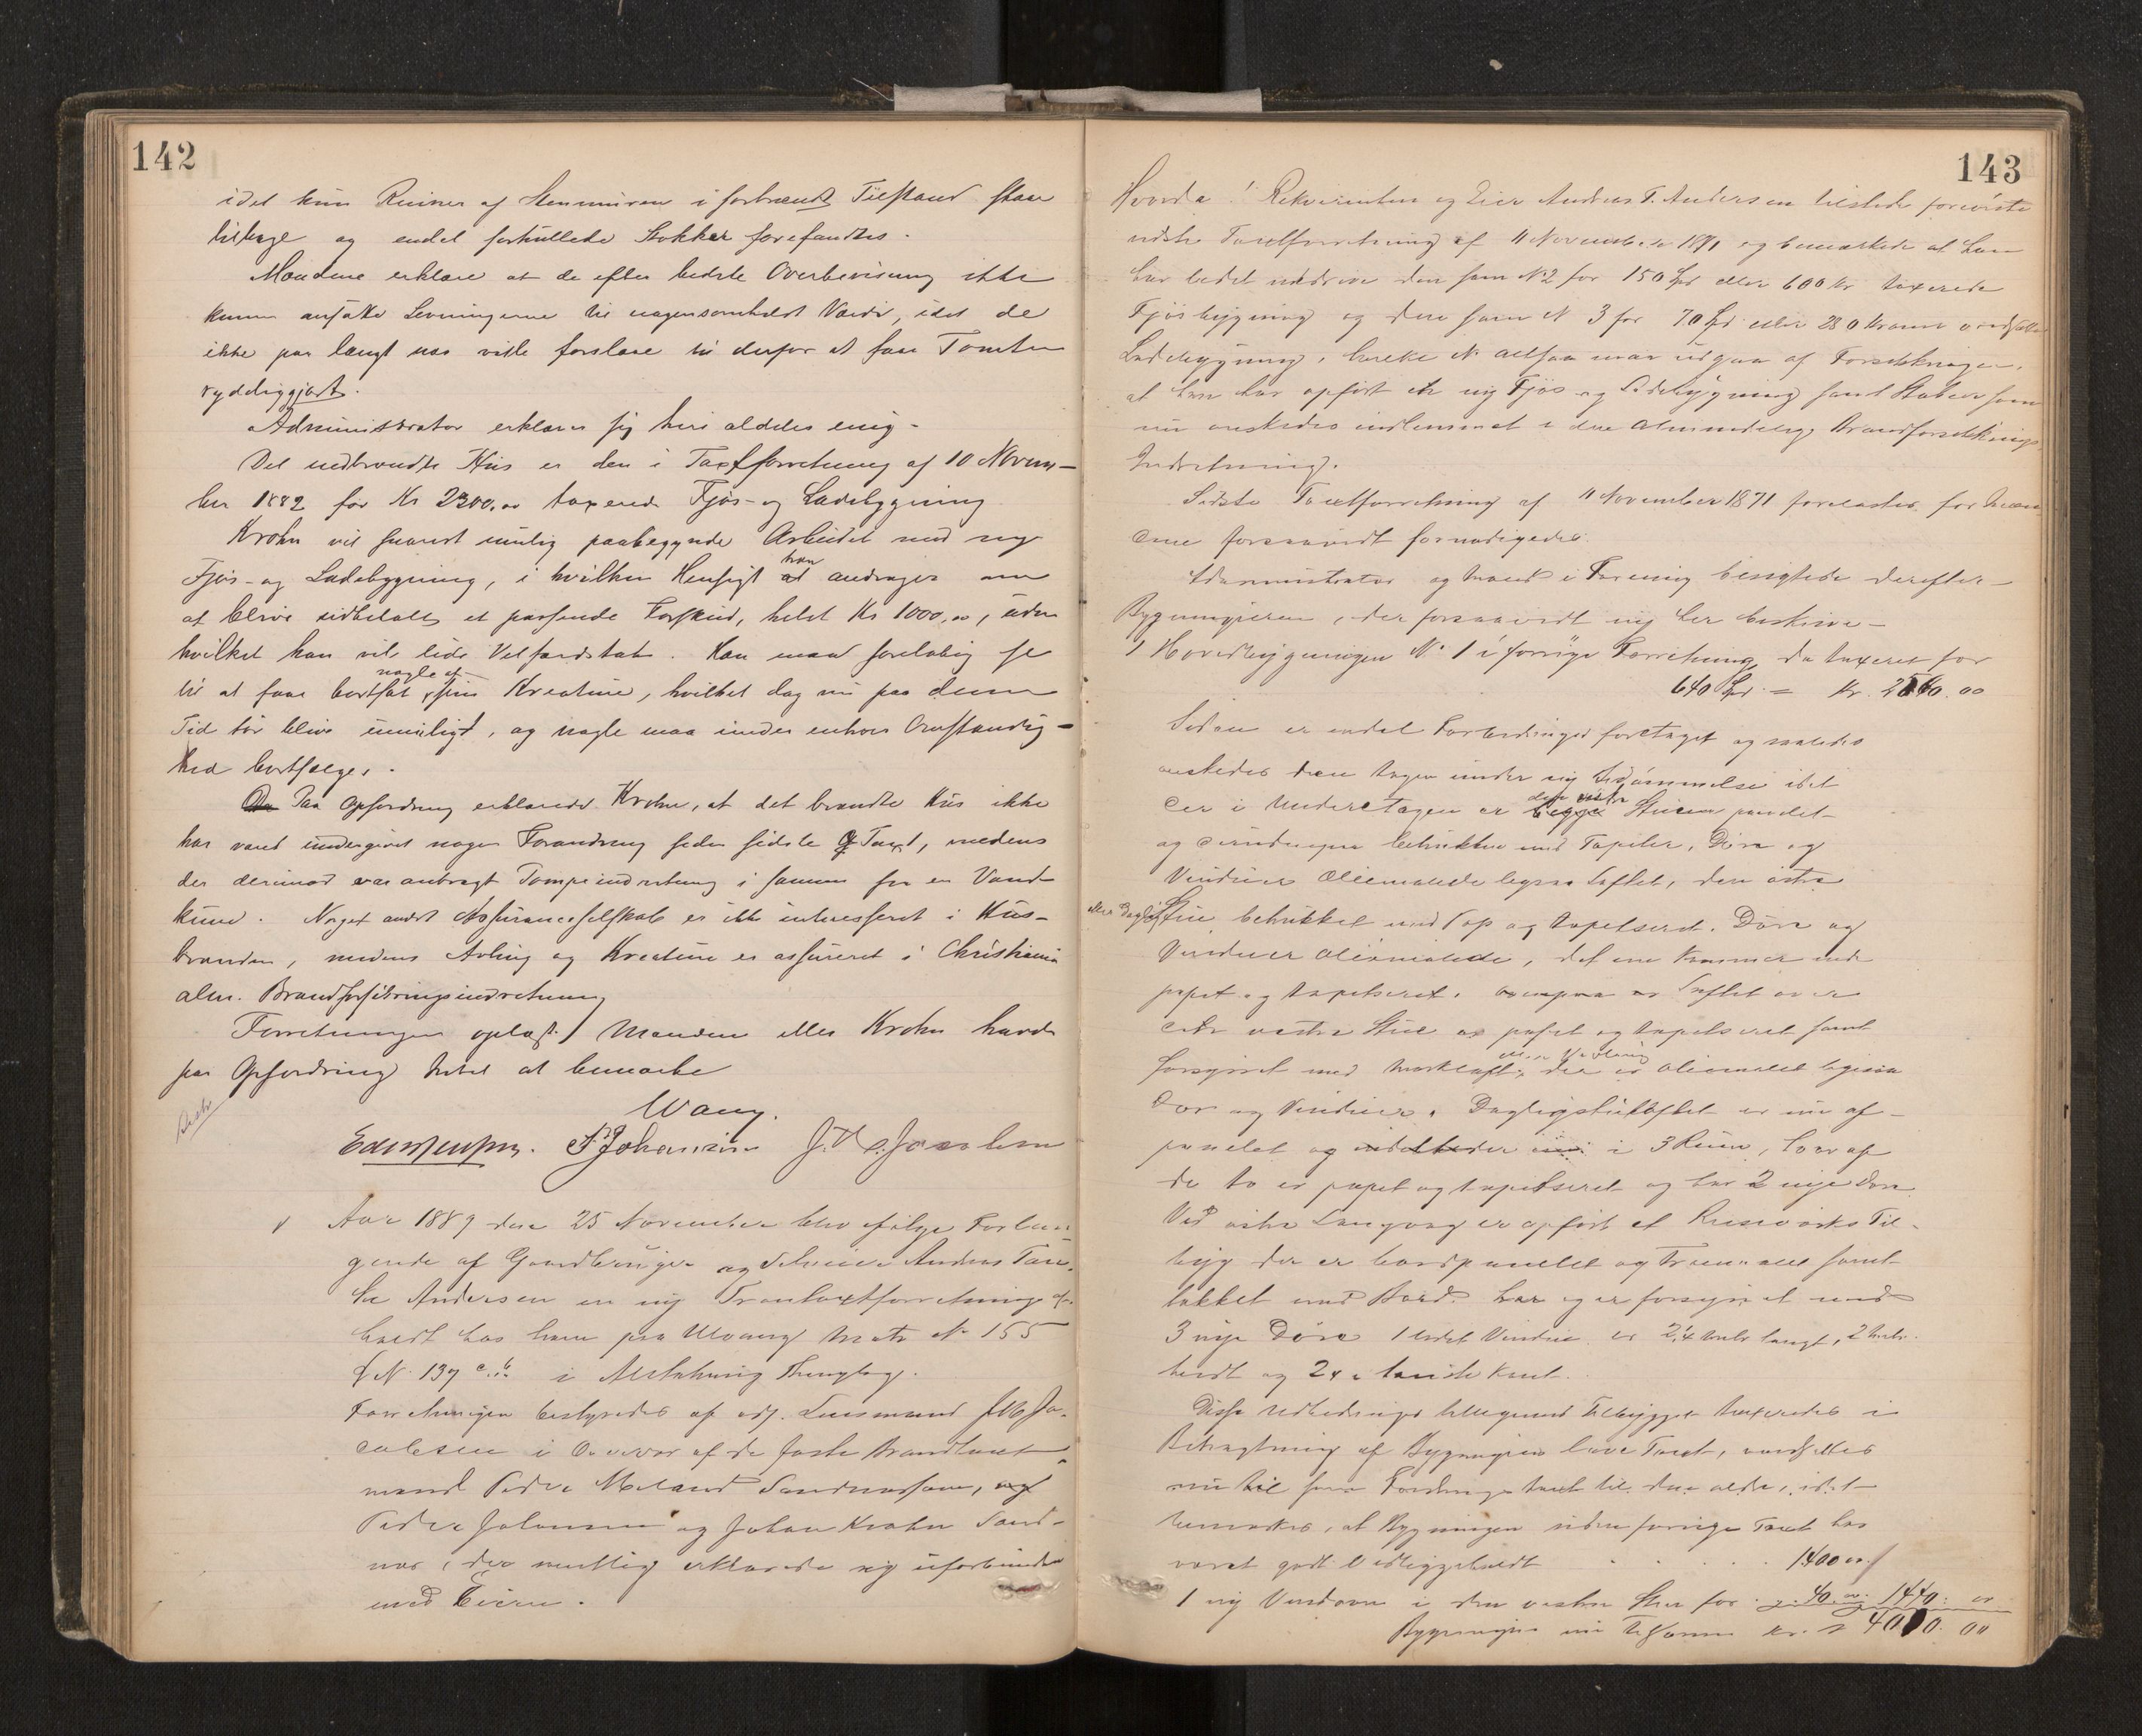 142
idet kun Ruiner af Stenmuren i forbrændt Tilstand staar
tilbage og endel forkullede Stokker forefandtes.
Mændene erklære at de efter bedste Overbevisning ikke
kunne ansætte Levningerne til nogensomhelst Værdi, idet de
ikke paa langt nær vilde forslaae til derfor at faae Tomten
ryddiggjort.
Administrator erklærer sig heri aldeles enig.
Det nedbrændte Hus er den i Taxtforretning af 10 Novem-
ber 1882 for Kr 2300,00 taxerede Fjøs- og Ladebygning
Krohn vil snarest mulig paabegynde Arbeidet med ny
Fjøs- og Ladebygning, i hvilken Hensigt han andrager om
at blive udbetalt et passende Forskud, helst Kr 1000,00, uden
hvilket han vil lide Velfærdstab. Han maa foreløbig se
til at faae bortsat nogle af sine Kreature, hvilket dog nu paa denne
Tid tør blive umuligt, og nogle maa under enhver Omstændig-
hed bortsælges.
Paa Opfordring erklærede Krohn, at det brændte Hus ikke
har været undergivet nogen Forandring siden sidste Taxt, medens
der derimod var anbragt Pompeindretning i samme fra en Vand-
kum. Noget andet Assuranceselskab er ikke interesseret i Hus-
branden, medens Avling og Kreature er assureret i Christiania
alm. Brandforsikringsindretning
Forretningen oplæst. Mændene eller Krohn havde
paa Opfordring Intet at bemærke
Wang.
P Johansen J. M. Jacobsen
Aar 1889 den 25 November blev ifølge Forlan-
gende af Gaardbruger og Selveier Anders
Andersen en ny Brandtaxtforretning af-
holdt hos ham paa Matr No 155
L No 139 c.b. i Thinglag.
Forretningen bestyredes af adj. Lensmand J M Ja-
cobsen i Overvær af de faste Brandtaxt-
mænd Peder Meland Sandnæs,
Peder Johansen og Johan Krohn Sand-
næs, der mundtlig erklærede sig uforbundne
med Eieren.
143
Hvorda! Rekvirenten og Eier Anders T. Andersen tilstede foreviste
sidste Taxtforretning af 11 November 1871 og bemærkede at han
har ladet nedrive den som No 2 for 150 Spd eller 600 Kr taxerede
Fjøsbygning og den som No 3 for 70 Spd eller 280 Kroner
Ladebygning, hvilke No altsaa maa udgaa af Forsikringen,
at han har opført en ny Fjøs og Ladebygning samt Stabur som
nu ønskedes indlemmet i den Almindelige Brandforsikrings
Indretning.
Sidste Taxtforretning af 11 November 1871 forelæstes for Mæn-
dene forsaavidt fornødigedes.
Administrator og Mænd i Forening besigtede derefter
Bygningerne, der forsaavidt ny her beskrives
1 Hovedbygningen No 1 i forrige Forretning, da taxeret for
640 Spd = Kr. 2560.00
Siden er endel Forbedringer foretaget og saaledes
ønskedes den tagen under ny Bedømmelse idet
der i Underetagen er den vestre Stuen panelet
og betrukken med Tapeter, Døre og
Vinduer Oliemalede ligesaa Loftet, den østre
eller Daglig Stue betrukket med Pap og tapetseret. Døre og
Vinduer oliemalede, det ene Kammer ende
papet og tapetseret. Loftet over
den vestre Stue er papet og tapetseret samt
forsynet med der er Oliemalet ligesaa
Døre og Vinduer. Dagligstueloftet er nu af-
panelet og i 3 Rum, hvoraf
de to er papet og tapetseret og har 2 nye Døre
Ved østre Langvæg er opført et Til-
byg der er bordpanelet og samt
tækket med Bord. Har og er forsynet med
3 nye Døre 1 Vindue er 2,4 Meter langt, 2 Meter
bredt og
Disse Udbedringer tilligemed Tilbygget taxeredes i
Betragtning af Bygningens lave Taxt, ansættes
nu til som Taxt til den ældre, idet
bemærkes, at Bygningen siden forrige Taxt har
været godt Vedligeholdt 1400 00
1 ny Vindovn i den vestre Stue for 40 00 1440. 00
Bygningen nu Tilsammen Kr. 4000.00